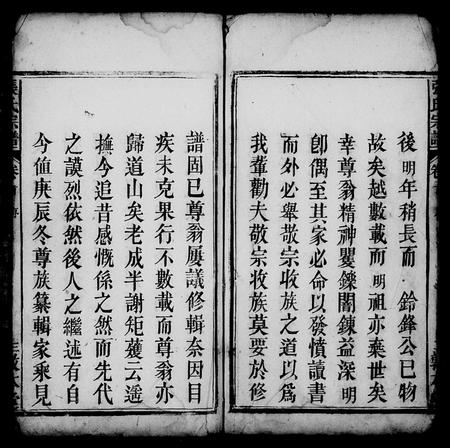 後 明年稍長而 鈴鋒公已物
故矣越數載而 明祖亦棄世矣
幸尊翁精神矍鑠闇鍊益深明
卽偶至其家必命以發憤讀書
而外必舉敬宗收族之道以爲
我輩勸夫敬宗收族莫要於修
譜固已尊翁屢議修輯奈因目
疾未克果行不數載而尊翁亦
歸道山矣老成半謝矩蒦云遥
撫今追昔感慨係之然而先代
之謨烈依然後人之繼述有自
今值庚辰冬尊族纂輯家乘見
張氏宗譜